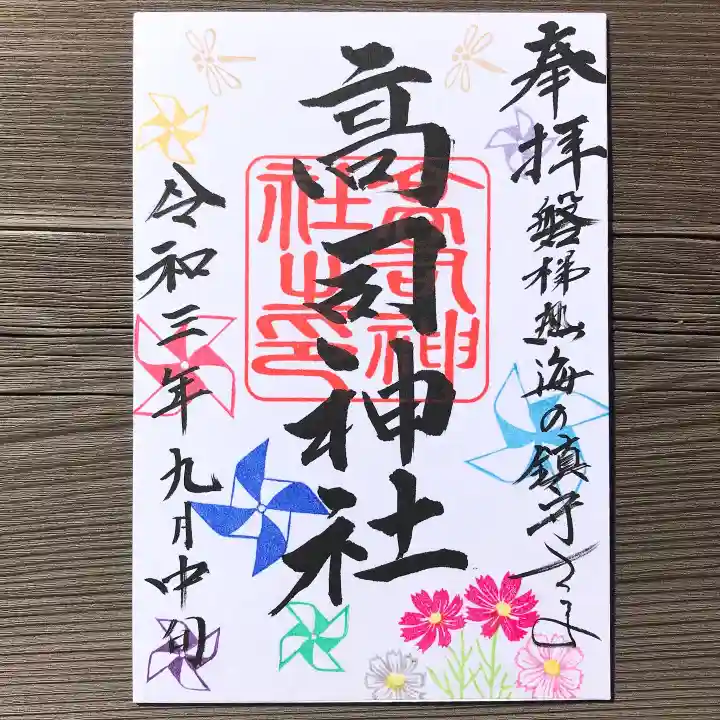 奉拝 磐梯熱海の鎮守さま
高司神社
高司神社之印
令和三年九月中旬